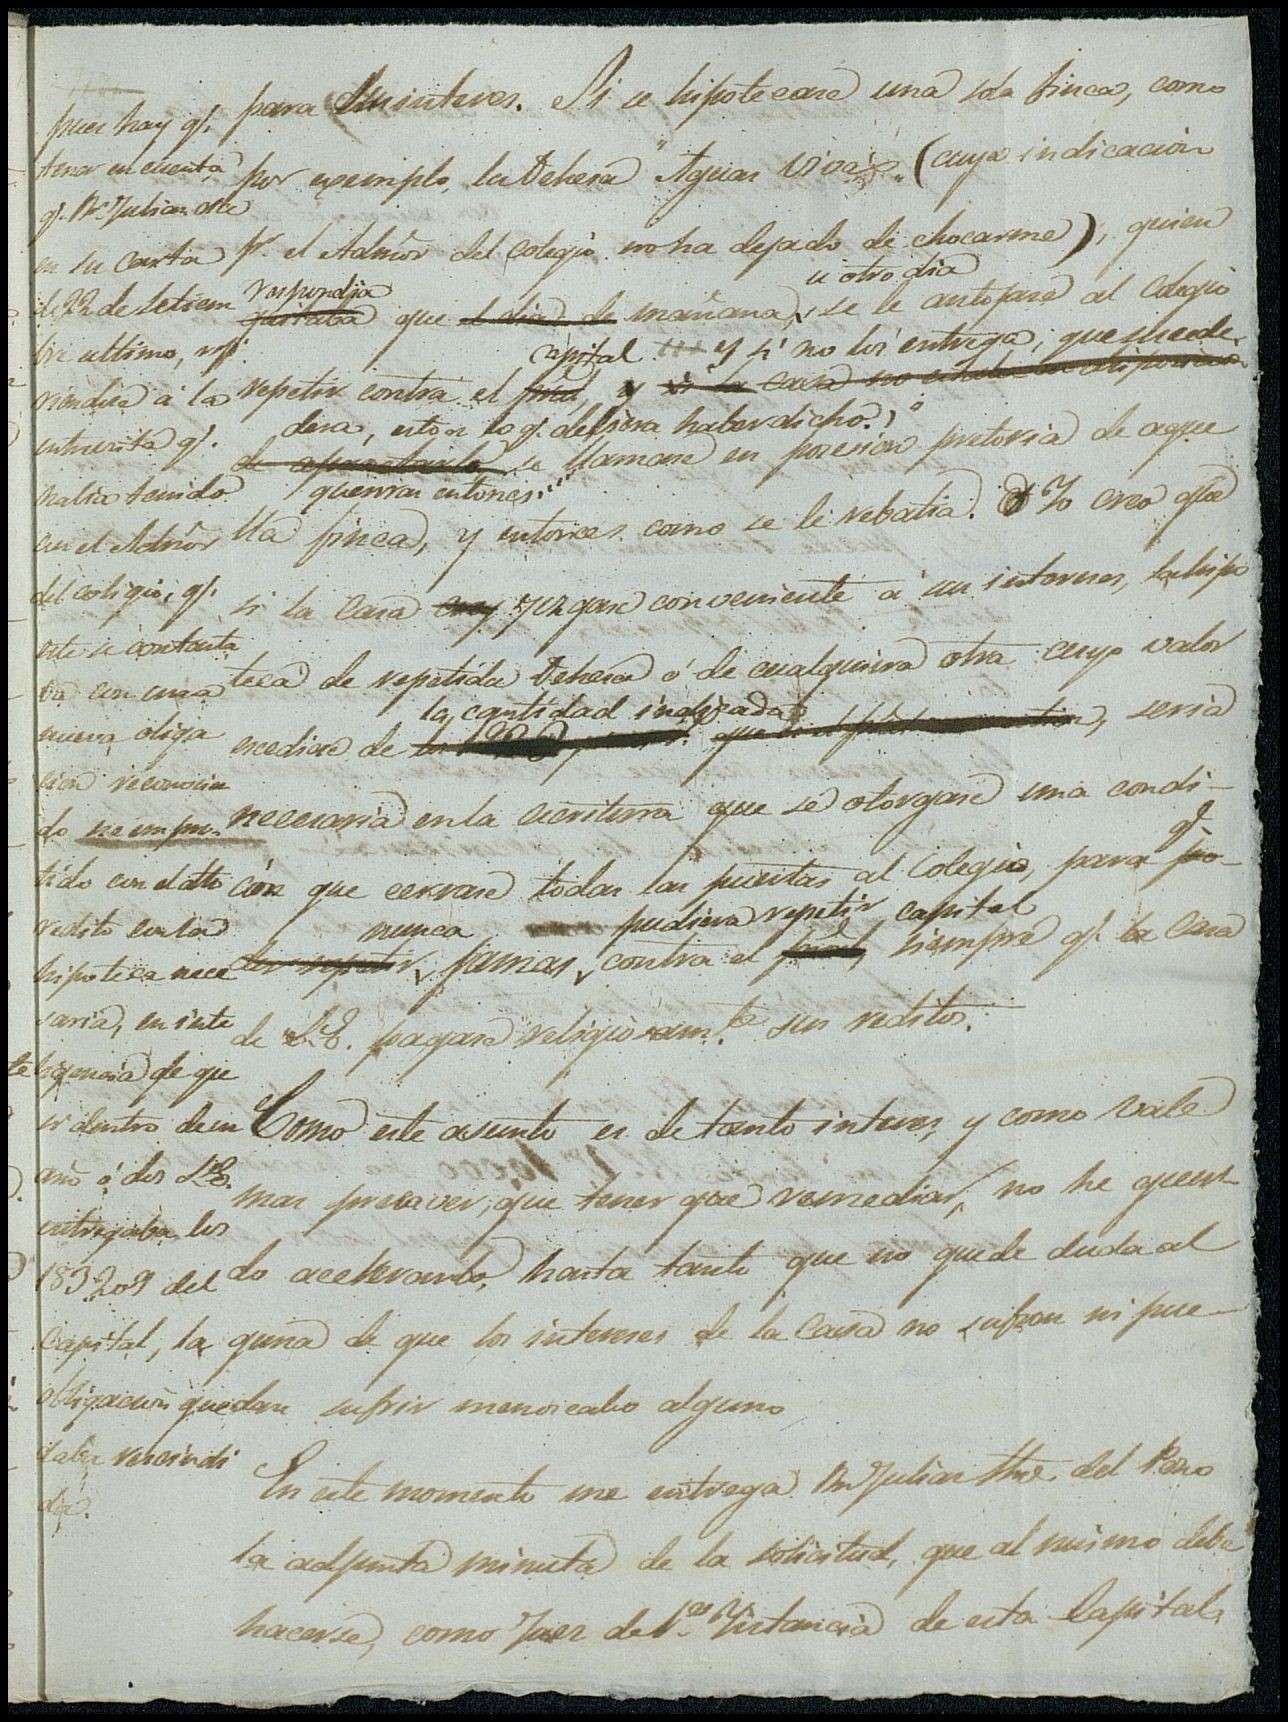 pues hay q.
tener en cuenta
q. Dn. Julian dice
en su carta
de 22 de Setiem
bre ultimo,
riendose á la
entrevista q.
habia tenido
con el Admor
del colegio, q.
este se contenta
ba con una
nueva obliga
cion reconocien
do
tido con el
redito con la
hipoteca nece
saria, en inte
ligencia de que
si dentro de un
año ó dos S.E.
entregaba los
183209 del
Capital, la
obligacion que
daba rescindi
da.
para sus intereses. Si se hipotecase una sola finca, como
por exemplo, la Dehesa "Aguas Vivas" (cuya indicacion
pr. el Admor del colegio no ha dejado de chocarme), quien
u otro dia
respondia
quitaba que el dia de mañana, se le antojase al Colegio
capital y si no los entrega, que sucede
repetir contra el
dera, esto es lo q. debiera haber dicho,
se llamase en posesion pretoria de aque
querran entonces
lla finca, y entonces como se le rebatia. Yo creo que
si la Casa juzgase conveniente á sus intereses, la hipo
teca de repetida Dehesa ó de cualquiera otra cuyo valor
la cantidad indicada
escediese de seria
necesaria en la escritura que se otorgase una condi-
q.
cion que cerrase todas las puertas al Colegio, para po-
nunca pudiera repetir capital
der repetir jamas contra el siempre q. la Casa
de S.E. pagase religiosam.te sus reditos.
Como este asunto es de tanto interes, y como vale
mas precaver, que tener que remediar, no he queri-
do acelerarlo, hasta tanto que no quede duda al
guna de que los intereses de la Casa no sufran ni pue-
dan sufrir menoscabo alguno
En este momento me entrega Dn. Julian del Peso
la adjunta minuta de la solicitud, que al mismo debe
hacerse, como Juez de 1.as Ynstancia de esta Capital,